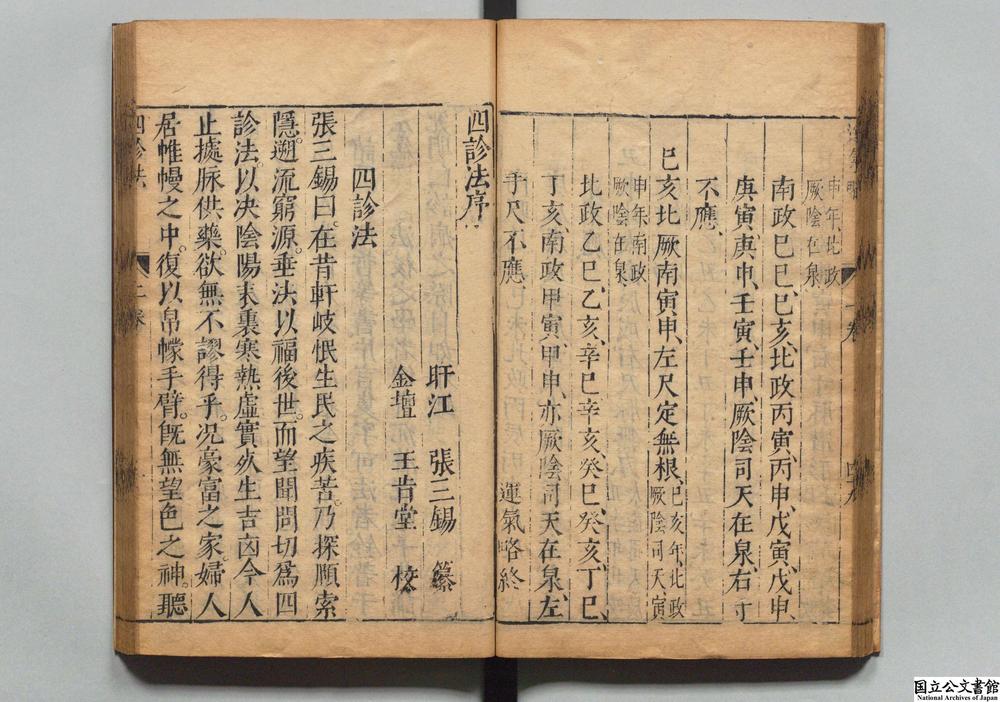 申年北政
厥陰在泉
南政巳巳巳亥北政丙寅丙申戊寅戊申
庚寅庚申壬寅壬申厥陰司天在泉右寸
不應
巳亥北厥南寅申左尺定無根巳亥年北政
厥陰司天寅
申年南政
厥陰在泉
北政乙巳乙亥辛巳辛亥癸巳癸亥丁巳
丁亥南政甲寅甲申亦厥陰司天在泉左
手尺不應
運氣略終
一卷
四九
四診法序
盱江 張三錫 纂
金壇 王肯堂 校
四診法
張三錫曰在昔軒岐憫生民之疾苦乃探賾索
隱遡流窮源垂法以福後世而望聞問切為四
診法以决陰陽表裏寒熱虛實死生吉凶今人
止據脉供藥欲無不謬得乎况豪富之家婦人
居帷幔之中復以帛幪手臂既無望色之神聽
四診法
二卷
国立公文書館
National Archives of Japan